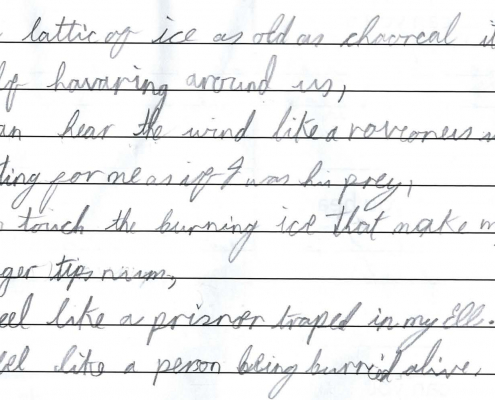 lattic of ice as old as chaorcal it
havaring around us,
an hear the wind like a
ting for me as if I was his prey,
touch the burning ice that make m
ger tips num,
eel like a prisner traped in my Ell.
eel like a person being burried alive,